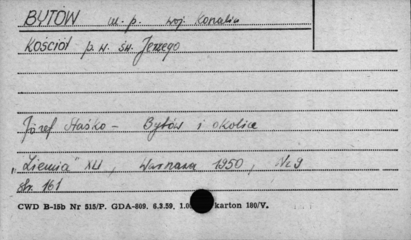 BYTÓW m. p. woj. Koszalin
Kościół p. w. św. Jerzego
Józef Staśko - Bytów i okolica
"Ziemia" XLI, Warszawa 1950, Nr 9
str. 161
CWD B-15b Nr 515/P. GDA-809. 6.3.59. karton 180/V.